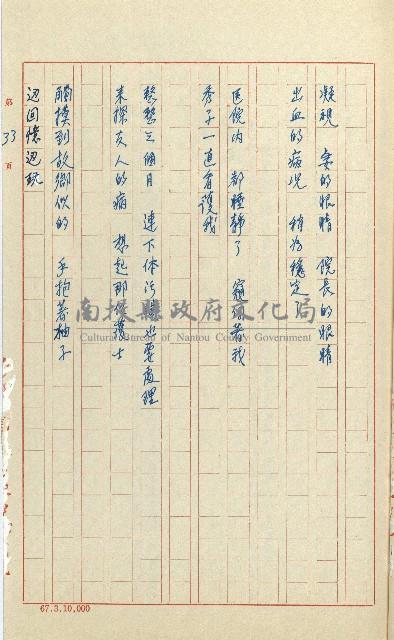 凝視 妻的眼睛 院長的眼睛
出血的病況 稍為穩定了
医院內 都睡靜了 窺視著我
秀子一直看護我
整整三個月 連下体污睡也要處理
来探友人的病 想起那位護士
觸摸到故鄉似的 手抱著柚子
边回憶边玩
第 33 頁
南投縣政府文化局
Cultural Bureau of Nantou County Government
67.3.10,000